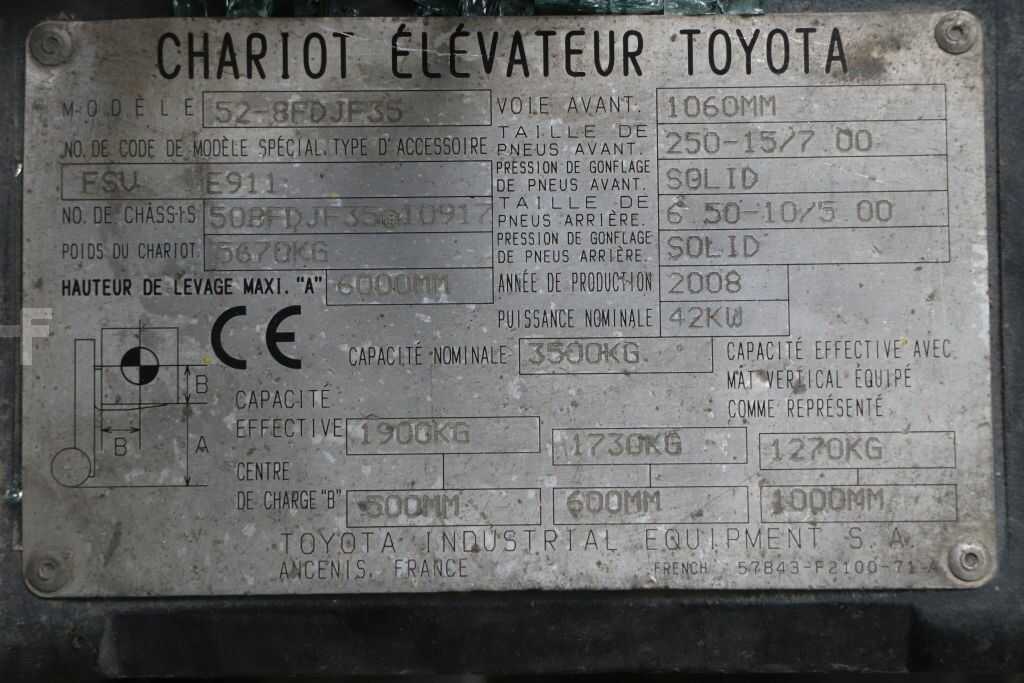 CHARIOT ÉLÉVATEUR TOYOTA
MODÈLE 52-8FDJF35
NO. DE CODE DE MODÈLE SPÉCIAL. TYPE D'ACCESSOIRE
FSV E911
NO. DE CHÂSSIS 508FDJF35@10917
POIDS DU CHARIOT. 5670KG
HAUTEUR DE LEVAGE MAXI. "A" 6000MM
VOIE AVANT. 1060MM
TAILLE DE
PNEUS AVANT. 250-15/7.00
PRESSION DE GONFLAGE
DE PNEUS AVANT. SOLID
TAILLE DE
PNEUS ARRIÈRE. 6.50-10/5.00
PRESSION DE GONFLAGE
DE PNEUS ARRIÈRE. SOLID
ANNÉE DE PRODUCTION 2008
PUISSANCE NOMINALE 42KW
CE
CAPACITÉ NOMINALE 3500KG
CAPACITÉ EFFECTIVE AVEC
MÂT VERTICAL ÉQUIPÉ
COMME REPRÉSENTÉ
B
B
A
CAPACITÉ
EFFECTIVE 1900KG 1730KG 1270KG
CENTRE
DE CHARGE "B" 500MM 600MM 1000MM
TOYOTA INDUSTRIAL EQUIPMENT S.A.
ANCENIS, FRANCE
FRENCH 57843-F2100-71-A